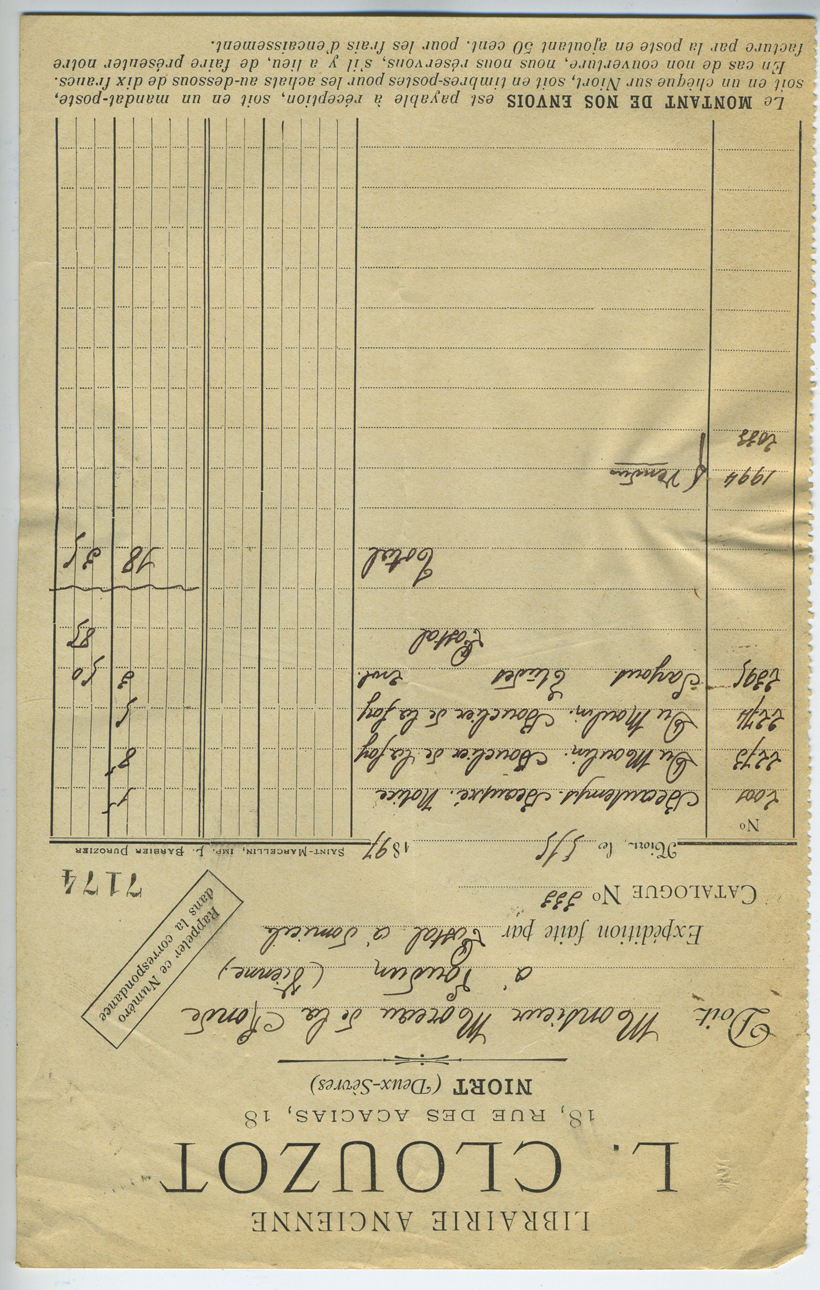 LIBRAIRIE ANCIENNE
L. CLOUZOT
18, RUE DES ACACIAS, 18
NIORT (Deux-Sèvres)
Doit Monsieur Moreau de la Ronde
à Loudun (Vienne)
Expédition faite par Postal à Domicile
Rappeler ce Numéro
dans la correspondance
CATALOGUE No 333
7174
Niort, le 5/5 1897
SAINT-MARCELLIN, IMP. L. BARBIER DUROZIER
No
2001 Beautemps. Beaupré. Notice 1 "
2273 Du Moulin. Bouclier de la foy 8 "
2274 Du Moulin. Bouclier de la foy 5
2395 Sayous Etudes 2 vol. 3 50
Postal 85
Total 18 35
1994 } Vendus
2033
Le MONTANT DE NOS ENVOIS est payable à réception, soit en un mandat-poste,
soit en un chèque sur Niort, soit en timbres-postes pour les achats au-dessous de dix francs.
En cas de non couverture, nous nous réservons, s'il y a lieu, de faire présenter notre
facture par la poste en ajoutant 50 cent. pour les frais d'encaissement.